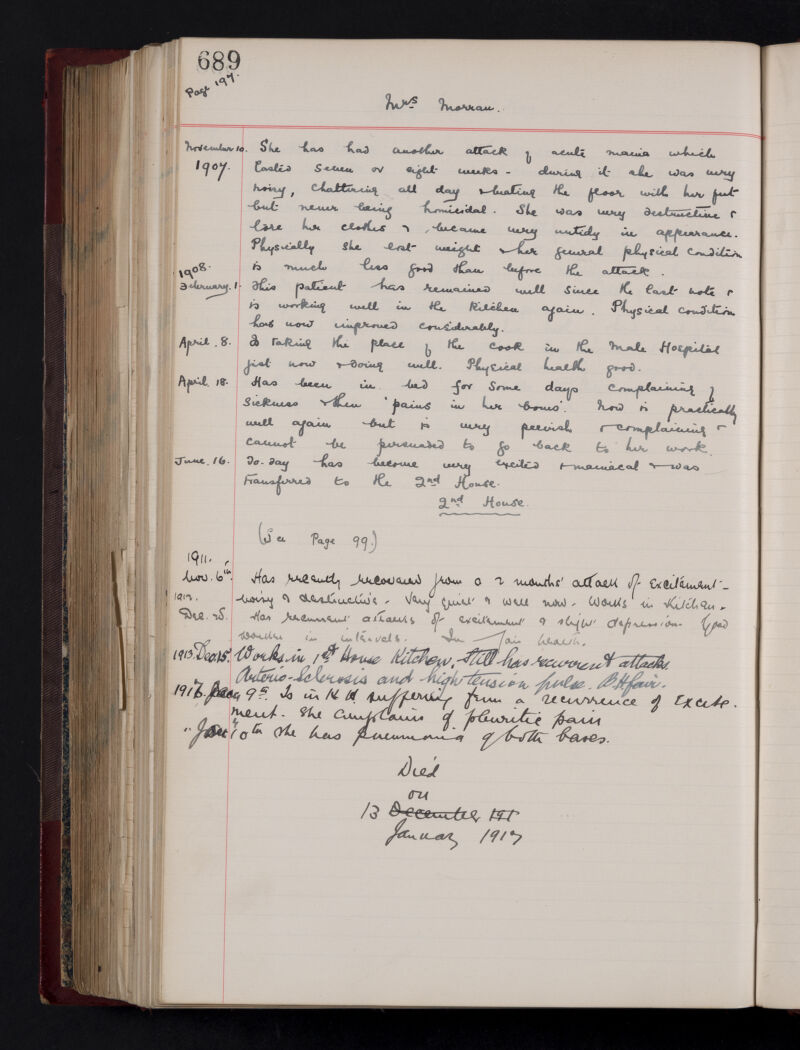 689
Page 197.
Mrs Morran.
November 10. She has had another attack of acute mania which
1907. lasted seven or eight weeks - during it she was very
noisy, chattering all day & beating the floor with her feet
but never being homicidal. She was very destructive &
tore her clothes & became very untidy in appearance.
Physically she lost weight & her general physical condition
is much less good than before the attack.
1908.
February. 1. This patient has remained well since the last note &
is working well in the kitchen again. Physical condition
has now improved considerably.
April. 8. Is taking the place of the cook in the Male Hospital
just now & doing well. Physical health good.
April. 18. Has been in bed for some days complaining of
sickness & then 'pains in her bones'. Now is practically
well again but is very peevish & complaining &
cannot be persuaded to go back to her work.
June. 16. To-day has become very excited & maniacal & was
transferred to the 2nd House.
2nd House.
(See Page 99.)
1911.
Nov. 6th. Has recently recovered from a 2 months' attack of excitement -
noisy & destructive. Very quiet & well now. Works in kitchen.
1912.
Dec. 25. Has recurrent attacks of excitement & slight depression. Good
worker in intervals. In fair health.
1913. Dec. 15. Works in 1st House Kitchen, still has recurrent attacks.
Arterio-Sclerosis and high tension pulse. B.H. fair.
1917. Jan 9th. Is in H.H. suffering from a recurrence of Excite-
ment. She complains of pleuritic pain
" Jan 10th she has pneumonia of both bases.
Died
on
13 December 191
January 1917